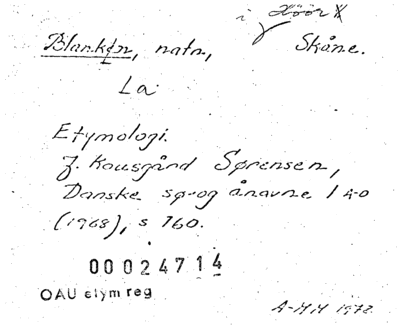 i Höör
Blanken, natn, Skåne.
La
Etymologi.
J. Kousgård Sørensen,
Danske sø- og ånavne 1 A-D
(1968), s 160.
00024714
OAU etym reg
A-MH 1972